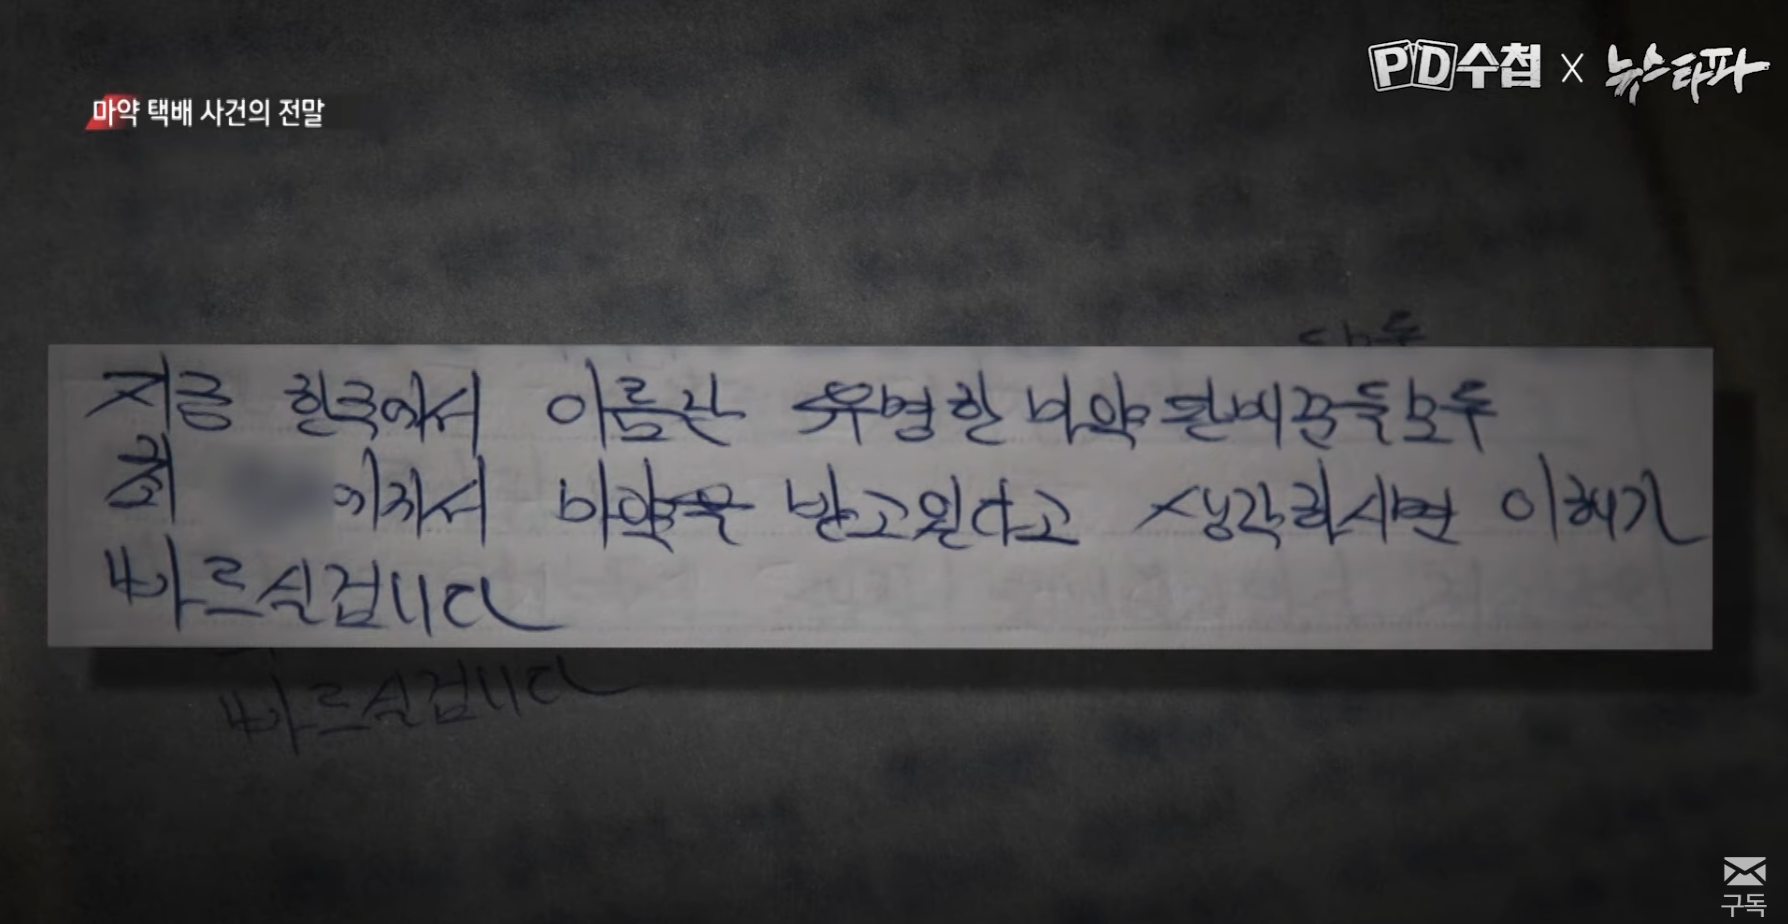 PD수첩 X 뉴스타파
마약 택배 사건의 전말
지금 한국에서 이름난 유명한 마약 판매꾼들 모두
최 에게서 마약을 받고있다고 생각하시면 이해가
빠르실겁니다
빠르실겁니다
구독